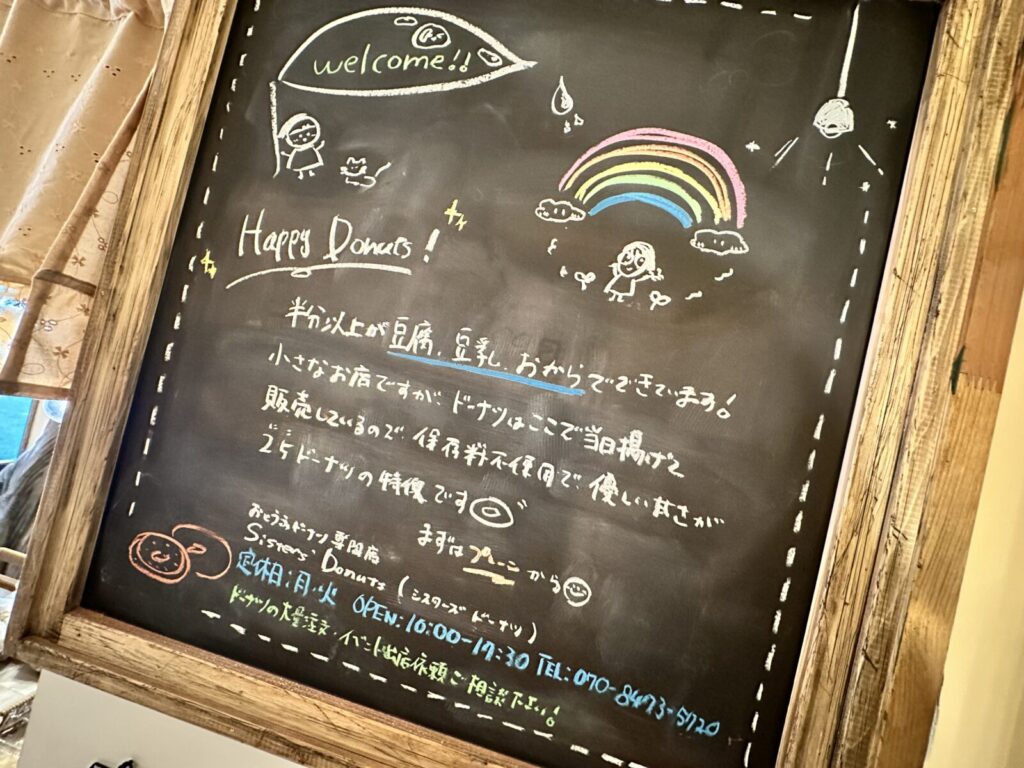 welcome!!
Happy Donuts!
半分以上が豆腐、豆乳、おからでできています!
小さなお店ですが、ドーナツはここで当日揚げて
販売しているので、保存料不使用で優しい甘さが
ドーナツの特徴です
まずはプレーンから
おとうふドーナツ専門店
Sisters' Donuts (シスターズ ドーナツ)
定休日:月・火 OPEN:10:00-17:30 TEL:070-8473-5720
ドーナツの大量注文・イベント出店依頼ご相談下さい!